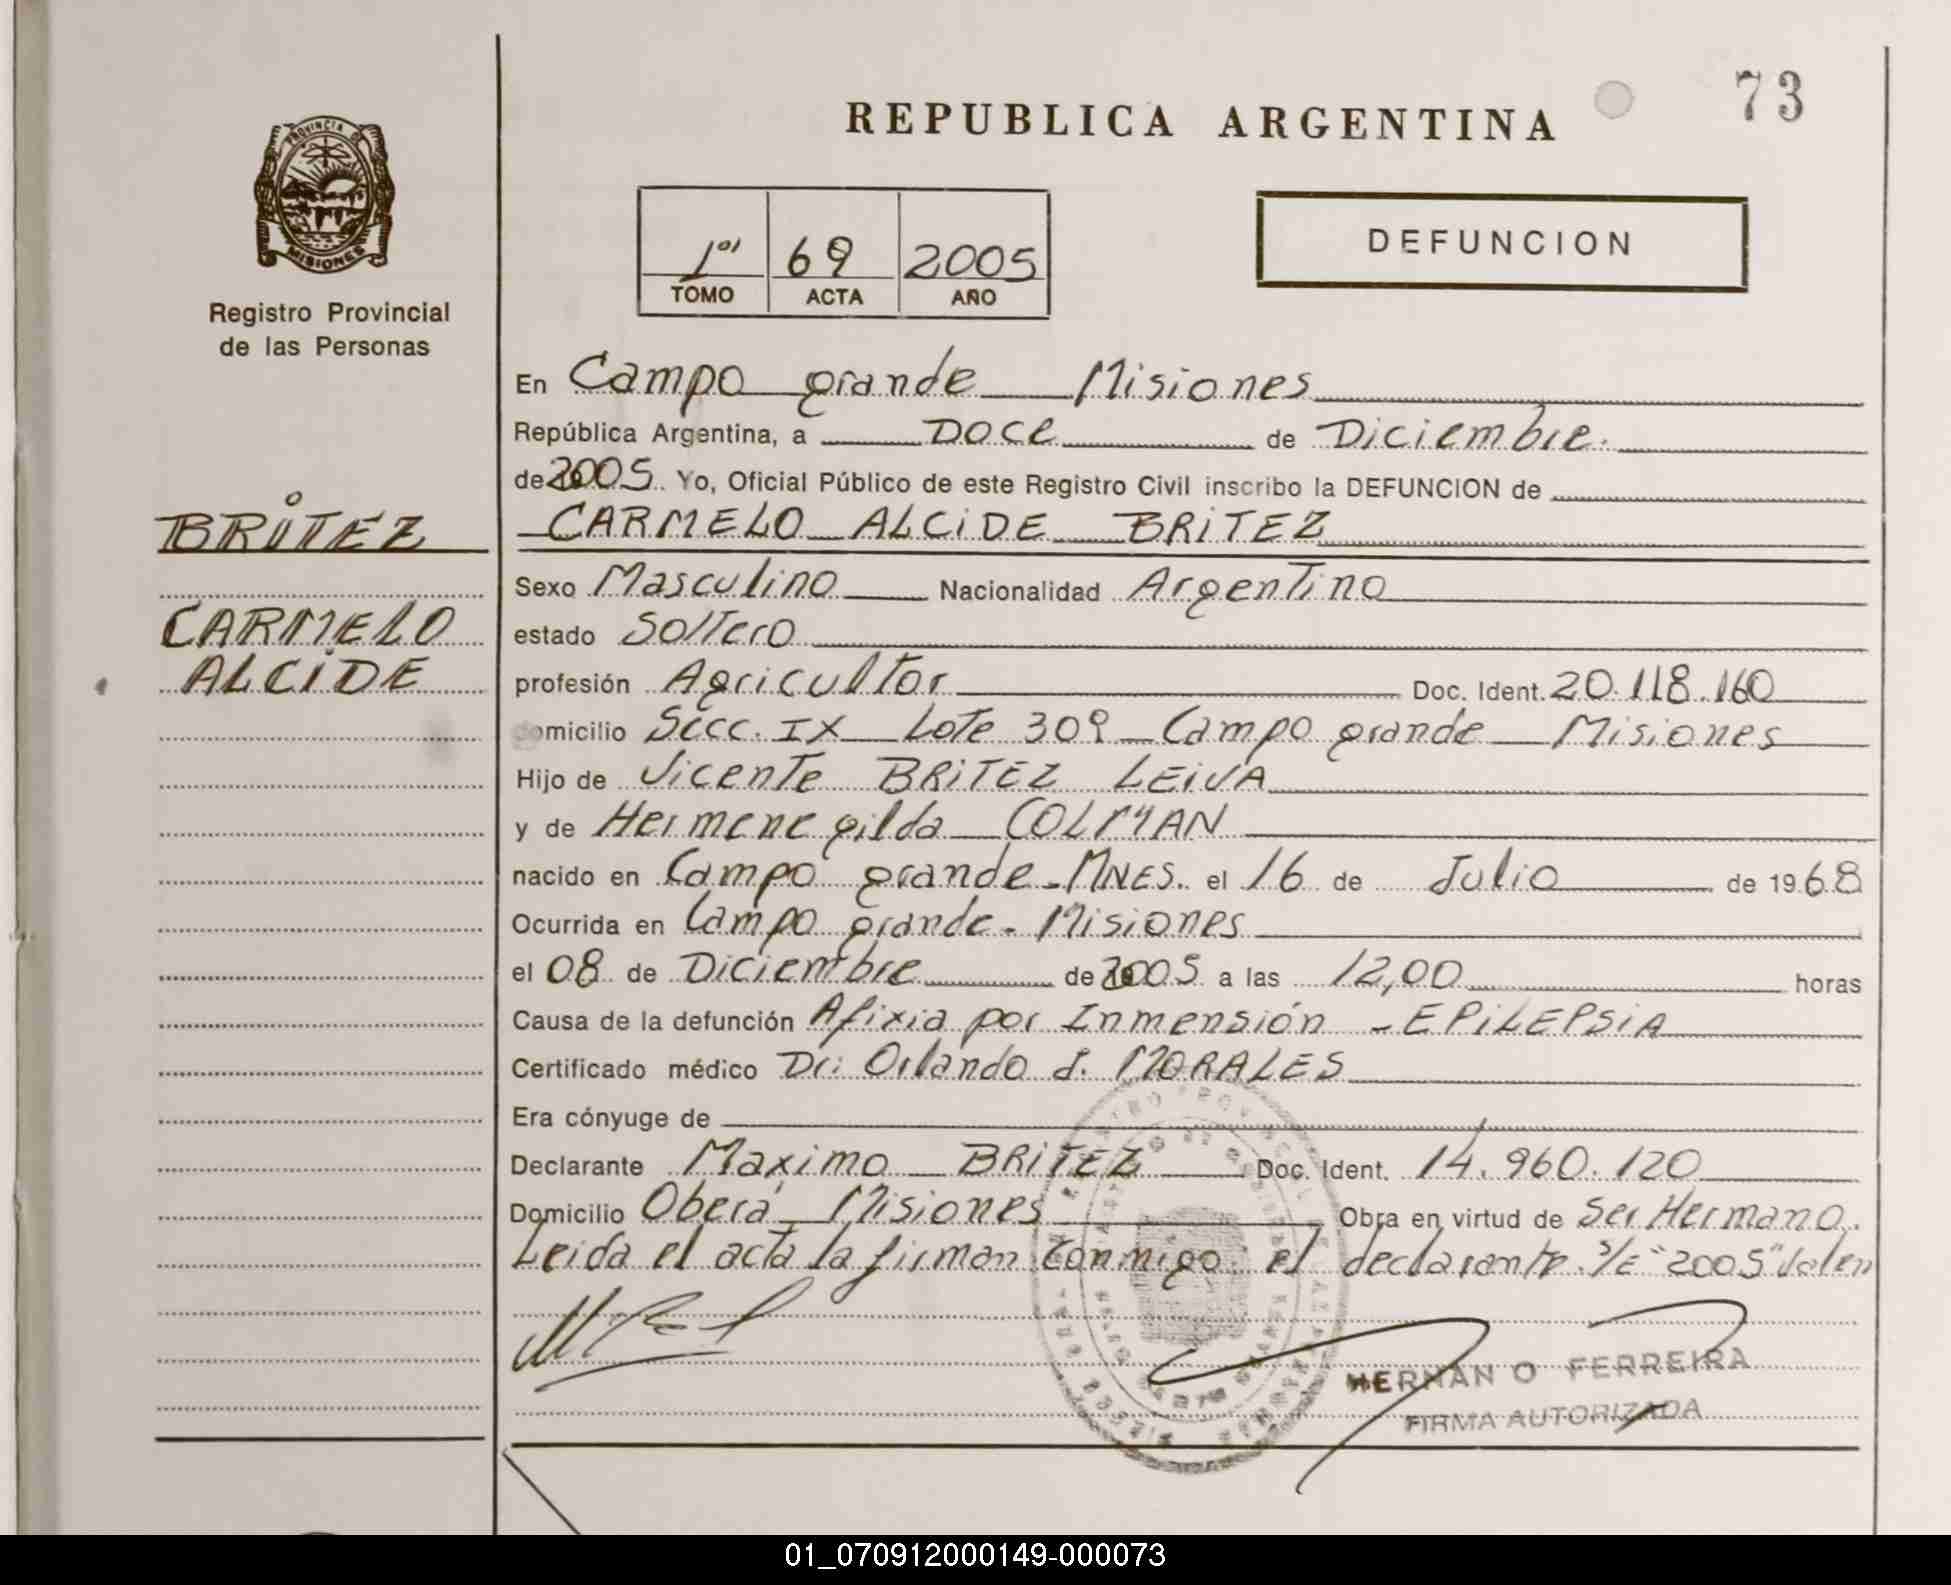 73
REPUBLICA ARGENTINA
PROVINCIA DE
MISIONES
Registro Provincial
de las Personas
1º 69 2005
TOMO ACTA AÑO
DEFUNCION
BRITEZ
CARMELO
ALCIDE
En Campo grande Misiones
República Argentina, a Doce de Diciembre.
de 2005. Yo, Oficial Público de este Registro Civil inscribo la DEFUNCION de
CARMELO ALCIDE BRITEZ
Sexo Masculino Nacionalidad Argentino
estado Soltero
profesión Agricultor Doc. Ident. 20.118.160
domicilio Secc. IX Lote 309 Campo grande Misiones
Hijo de Vicente BRITEZ LEIVA
y de Hermenegilda COLMAN
nacido en Campo grande - MNES. el 16 de Julio de 1968
Ocurrida en Campo grande - Misiones
el 08 de Diciembre de 2005 a las 12,00 horas
Causa de la defunción Afixia por Inmensión - EPILEPSIA
Certificado médico Dr: Orlando J. MORALES
Era cónyuge de
Declarante Maximo BRITEZ Doc. Ident. 14.960.120
Domicilio Oberá Misiones Obra en virtud de Ser Hermano.
Leida el acta la firman conmigo el declarante. S/E "2005" Valen
HERNAN O FERREIRA
FIRMA AUTORIZADA
01_070912000149-000073